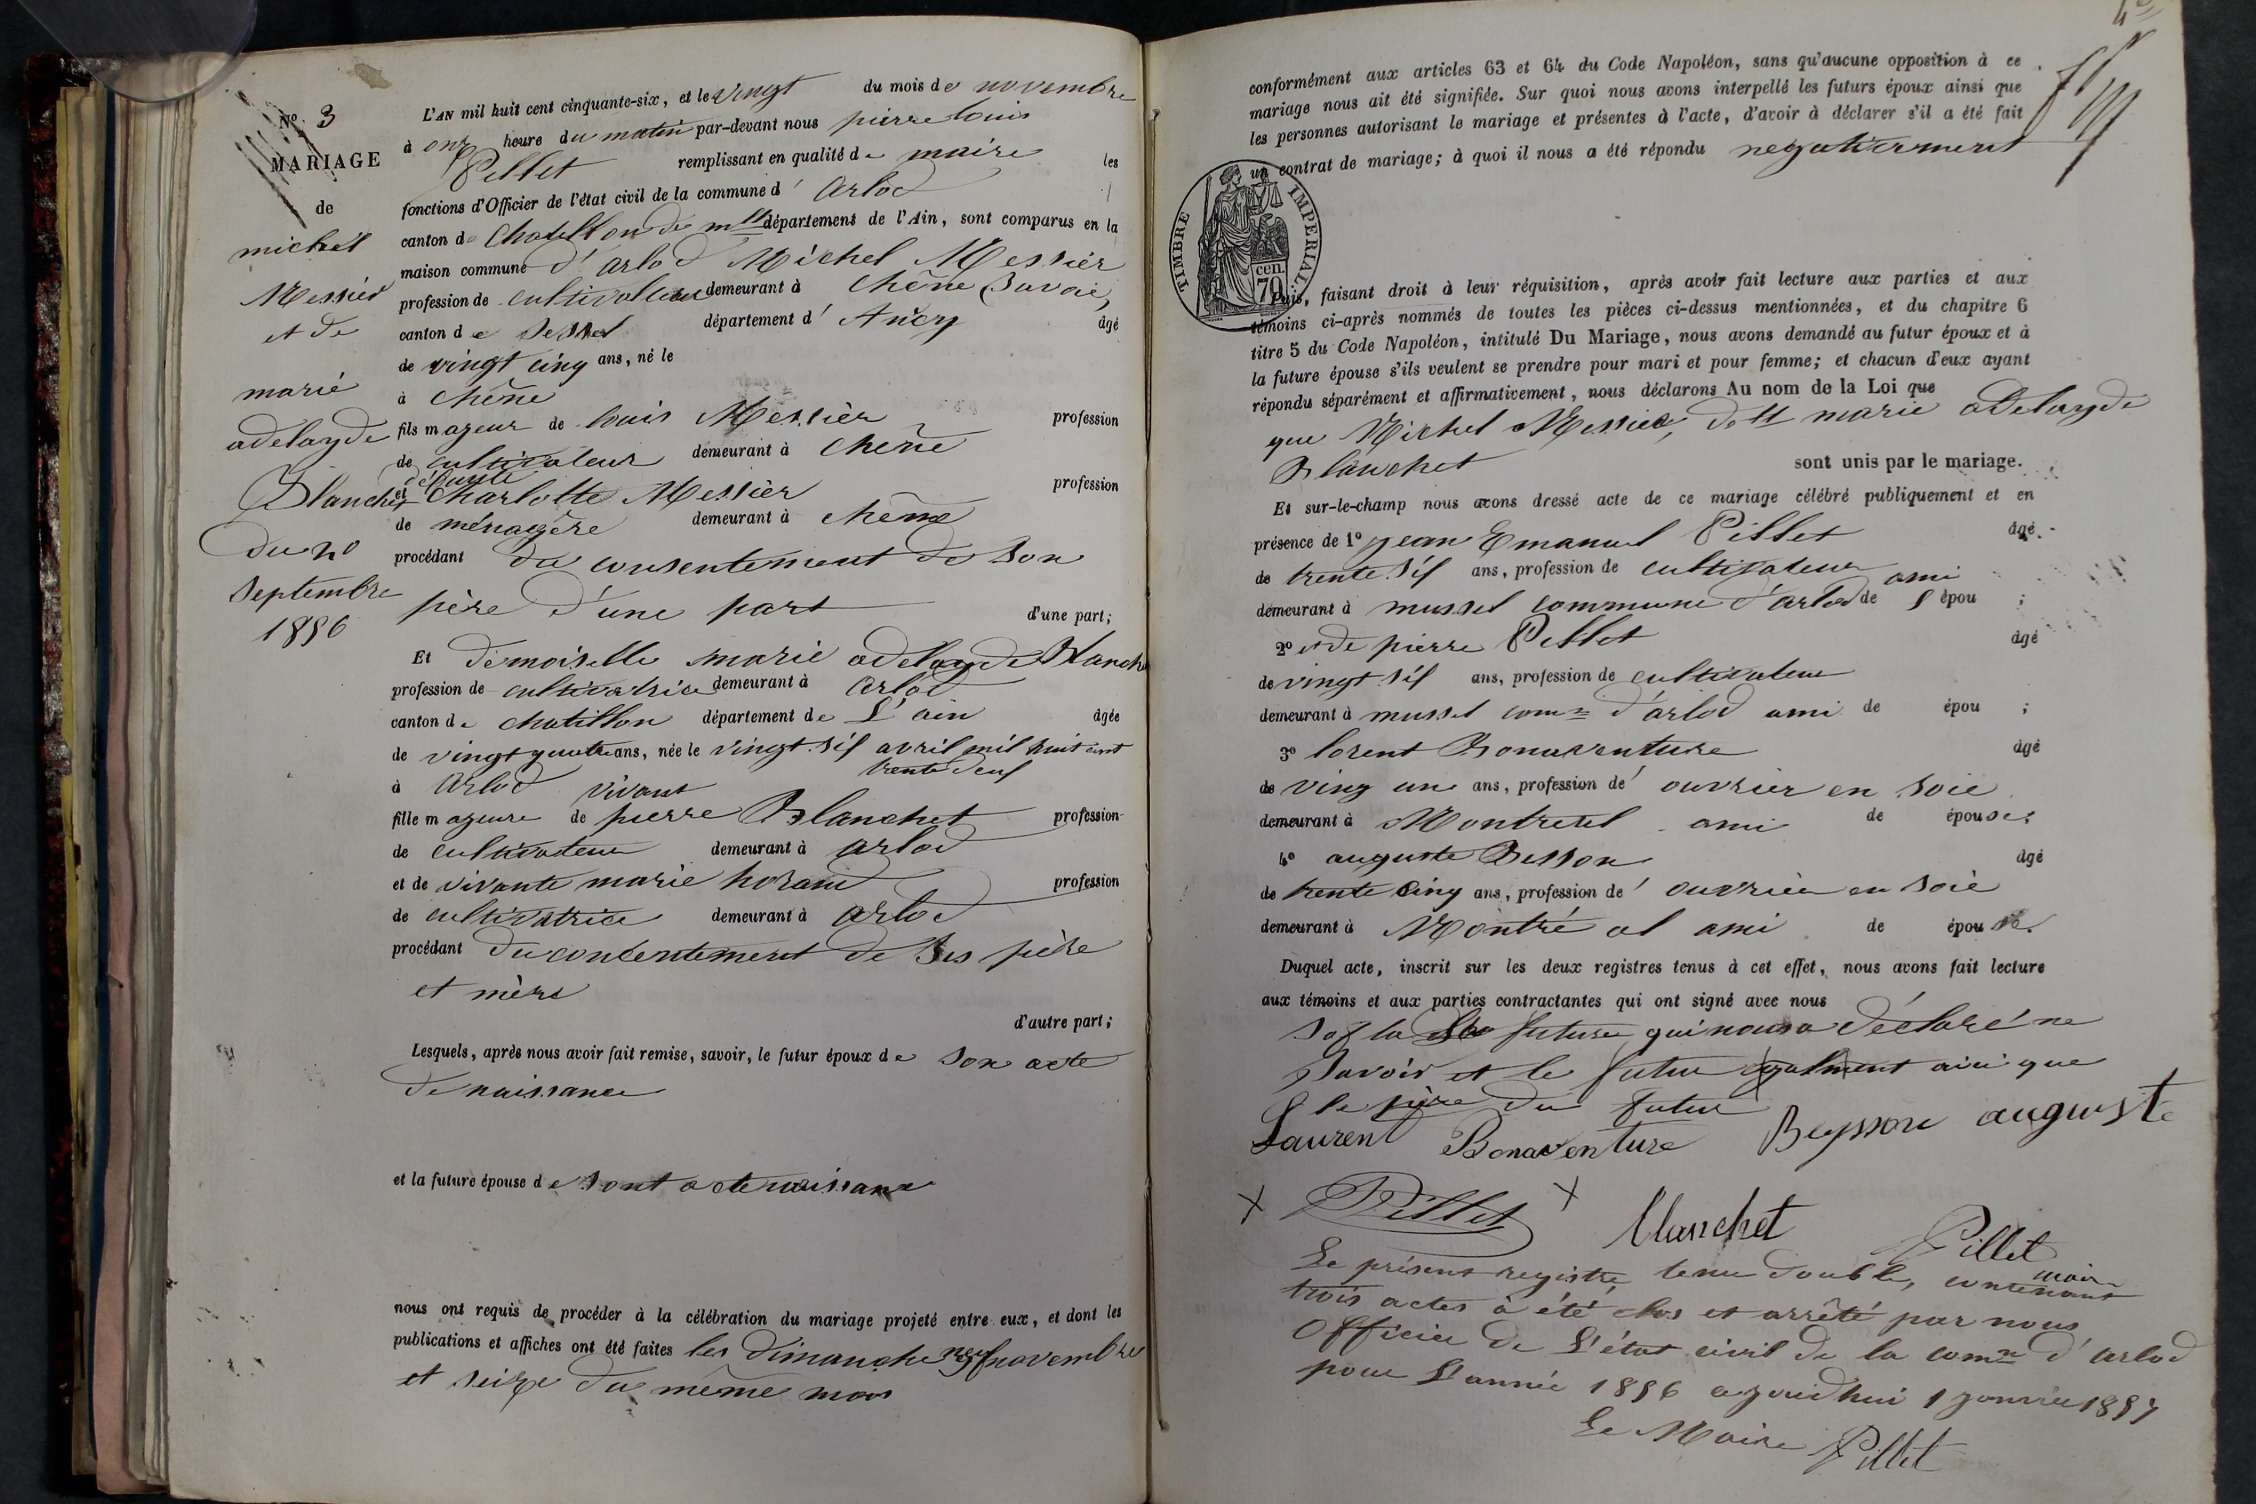 N° 3
MARIAGE
de
michel
Messier
et de
marie
adelayde
Blanchet
du 20
septembre
1856
L'AN mil huit cent cinquante-six, et le vingt du mois de novembre
à onz heure du matin par-devant nous pierre louis
Pillet remplissant en qualité de maire les
fonctions d'Officier de l'état civil de la commune d' arlod
canton de Chatillon de m département de l'Ain, sont comparus en la
maison commune d'arlod Michel Messier
profession de cultivateur demeurant à chêne Savoie,
canton de Sessel département d' Ancy âgé
de vingt cinq ans, né le
à chêne
fils majeur de louis Messièr profession
de cultivateur demeurant à chêne
défunte
et charlotte Messièr profession
de ménagère demeurant à chêne
procédant du consentement de son
père d'une part d'une part;
Et demoiselle marie adelayde Blanche
profession de cultivatrice demeurant à arlod
canton de chatillon département de L'ain âgée
de vingt quatre ans, née le vingt sis avril mil huit cent
trente deux
à arlod vivant
fille majeure de pierre Blanchet profession
de cultivateur demeurant à arlod
et de vivante marie profession
de cultivatrice demeurant à arlod
procédant du concentement de ses père
et mère
d'autre part;
Lesquels, après nous avoir fait remise, savoir, le futur époux de son acte
de naissance
et la future épouse de sont acte naissance
nous ont requis de procéder à la célébration du mariage projeté entre eux, et dont les
publications et affiches ont été faites les dimanche neuf novembre
et seize du même mois
conformément aux articles 63 et 64 du Code Napoléon, sans qu'aucune opposition à ce
mariage nous ait été signifiée. Sur quoi nous avons interpellé les futurs époux ainsi que
les personnes autorisant le mariage et présentes à l'acte, d'avoir à déclarer s'il a été fait
un contrat de mariage; à quoi il nous a été répondu negativement
TIMBRE IMPERIAL
cen.
70
Puis, faisant droit à leur réquisition, après avoir fait lecture aux parties et aux
témoins ci-après nommés de toutes les pièces ci-dessus mentionnées, et du chapitre 6
titre 5 du Code Napoléon, intitulé Du Mariage, nous avons demandé au futur époux et à
la future épouse s'ils veulent se prendre pour mari et pour femme; et chacun d'eux ayant
répondu séparément et affirmativement, nous déclarons Au nom de la Loi que
que Michel Messier, dell marie adelayde
Blanchet sont unis par le mariage.
Et sur-le-champ nous avons dressé acte de ce mariage célébré publiquement et en
présence de 1° jean Emanuel Pillet âgé
de trente sis ans, profession de cultivateur
demeurant à mussel commune d'arlod ami de l'épou ;
2° et de pierre Pillet âgé
de vingt sis ans, profession de cultivateur
demeurant à mussel comne d'arlod ami de épou ;
3° lorent Bonaventure âgé
de ving un ans, profession de ouvrier en soie
demeurant à Montreal ami de épouse;
4° auguste Besson âgé
de trente cinq ans, profession de ouvrier en soie
demeurant à Montré al ami de épouse.
Duquel acte, inscrit sur les deux registres tenus à cet effet, nous avons fait lecture
aux témoins et aux parties contractantes qui ont signé avec nous
sof la future qui nous a déclaré ne
savoir et le futur egalment aini que
le père du futur
Laurent Bonaventure Beysson auguste
Pillet Blanchet Pillet
maire
Le présent registre tenu double, contenant
trois actes à été clos et arrêté par nous
Officier de L'état civil de la comne d'arlod
pour L'année 1856 ajourdhui 1 janvier 1857
Le Maire Pillet